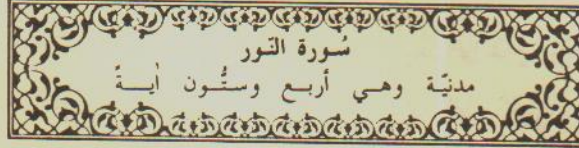 سُورة النّور
مدنيّة وهي أربع وستُّون اٰيــةً